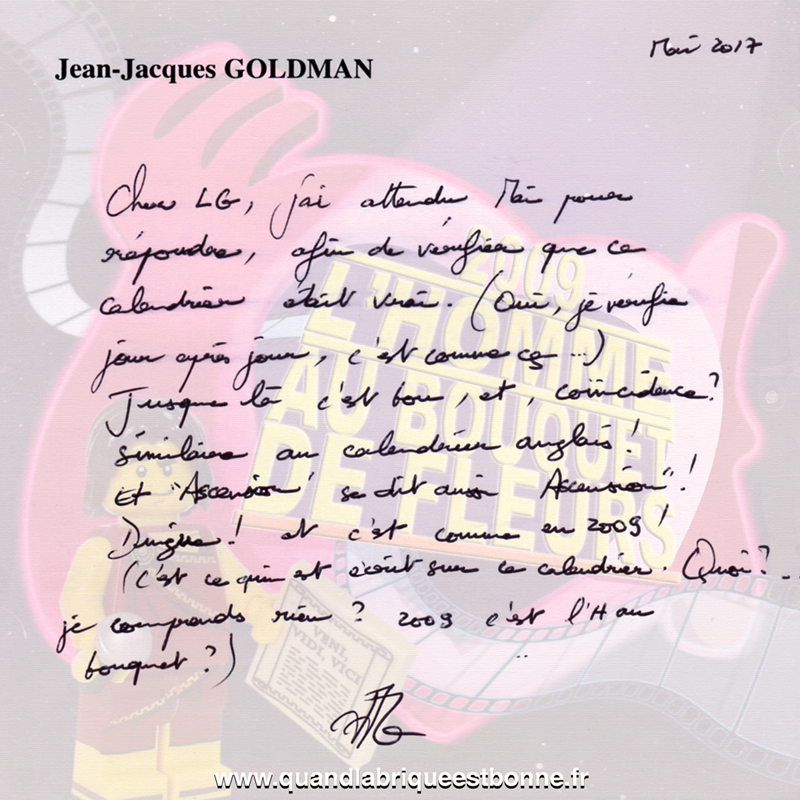 Jean-Jacques GOLDMAN
Mai 2017
Cher LG, j'ai attendu Mai pour
répondre, afin de vérifier que ce
calendrier était vrai. (Oui, je vérifie
jour après jour, c'est comme ça ...)
Jusque là c'est bon, et, coïncidence?
similaire au calendrier anglais!
Et "Ascension" se dit aussi "Ascension"!
Dingue! et c'est comme en 2009!
(C'est ce qui est écrit sur ce calendrier. Quoi? ...
je comprends rien? 2009 c'est l'H au
bouquet?)
2009
L'HOMME
AU BOUQUET
DE FLEURS
VENI,
VIDI, VICI
www.quandlabriqueestbonne.fr